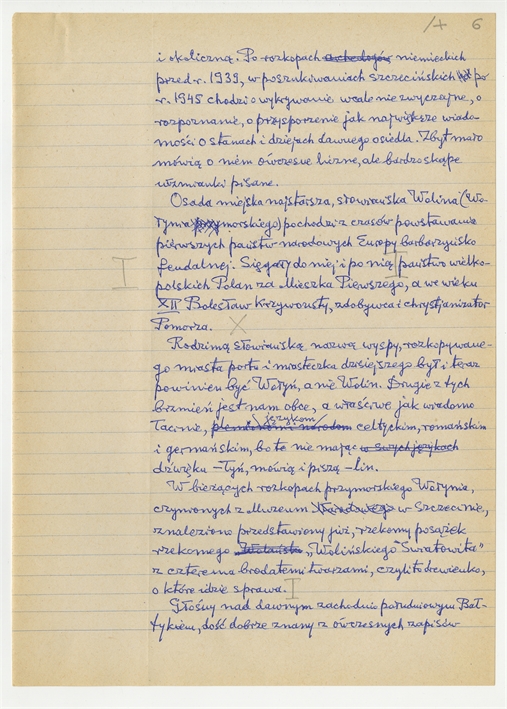 /+ 6
i okoliczną. Po rozkopach archeologów niemieckich
przed r. 1939, w poszukiwaniach szczecińskich po
r. 1945 chodzi o wykrywanie wcale nie zwyczajne, o
rozpoznanie, o przysporzenie jak największe wiado-
mości o stanach i dziejach dawnego osiedla. Zbyt mało
mówią o nim ówczesne liczne, ale bardzo skąpe
wzmianki pisane.
Osada miejska najstarsza, słowiańska Wolina (Wo-
łynia przymorskiego) pochodzi z czasów powstawania
pierwszych państw narodowych Europy barbarzyńsko
feudalnej. Sięgały do niej i po nią państwo wielko-
polskich Polan za Mieszka Pierwszego, a we wieku
XII Bolesław Krzywousty, zdobywca i chrystjanizator
Pomorza.
Rodzimą słowiańską nazwą wyspy, rozkopywane-
go miasta portu i miasteczka dzisiejszego był i teraz
powinien być Wołyń, a nie Wolin. Drugie z tych
brzmień jest nam obce, a właściwe jak wiadomo
językom
łacinie, plemionom i narodom celtyckim, romańskim
i germańskim, bo te nie mając w swych językach
dźwięku –łyń, mówią i piszą –lin.
W bieżących rozkopach przymorskiego Wołynia,
czynionych z Muzeum Narodowego w Szczecinie,
znaleziono przedstawiony już, rzekomy posążek
rzekomego „Wolińskiego Światowita”
z czterema brodatemi twarzami, czyli to drewienko,
o które idzie sprawa.
Głośny nad dawnym zachodnio południowym Bał-
tykiem, dość dobrze znany z ówczesnych zapisów